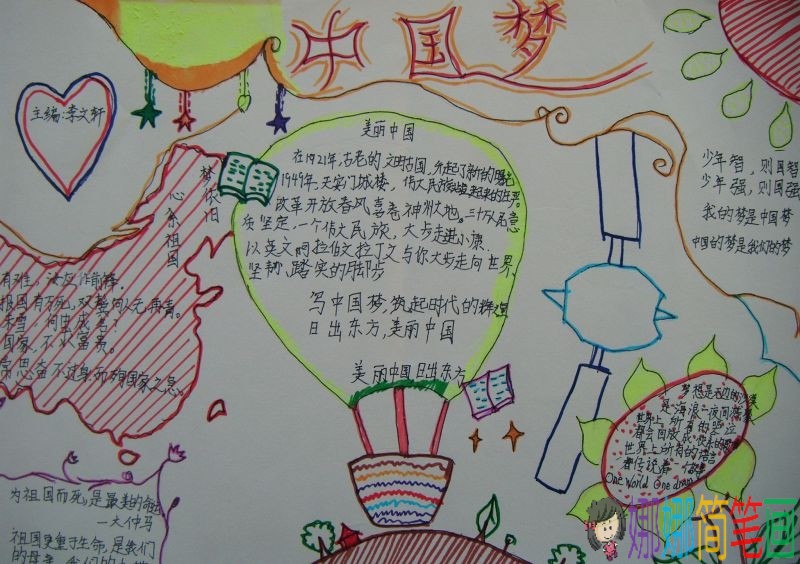 中国梦
主编:李文轩
梦依旧
心系祖国
美丽中国
在1921年,古老的文明古国,升起了新的曙光
1949年,天安门城楼,伟大民族站起来的庄严。
改革开放春风喜卷神州大地。三十
质坚定,一个伟大民族,大步走进小康.
以英文阿拉伯文拉丁文与你大步走向世界,
坚韧,踏实的脚步
写中国梦,筑起时代的辉煌
日出东方,美丽中国
美丽中国日出东方
少年智,则国智
少年强,则国强
我的梦是中国梦
中国的梦是我们的梦
报国有万死,双鬓向人无再青。
国家,不以富贵。
常思奋不过身,而殉国家之急。
为祖国而死,是最美的命运
—大仲马
祖国更重于生命,是我们
的母亲,我们的
梦想是无边的沙漠
是海浪一夜间
世界上所有的
世界上所有的语言
One World One dream
娜娜简笔画